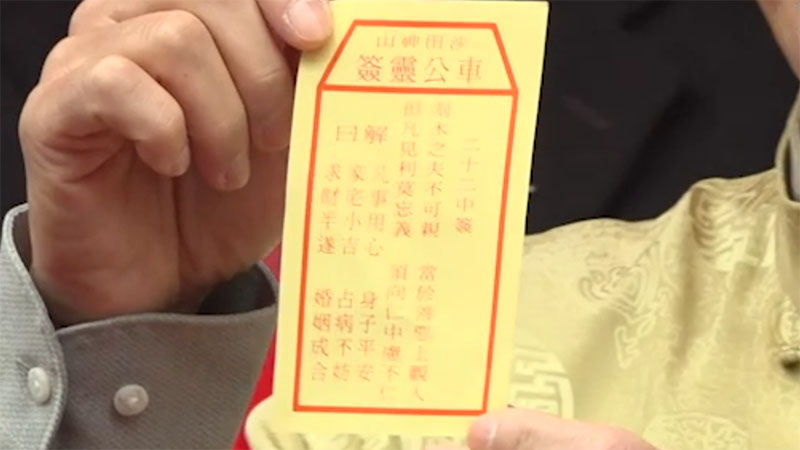 沙田神山
車公靈簽
二十二中簽
木之夫不可親 當於善惡上觀人
但凡見利莫忘義 須向 中慮不仁
解曰
凡事用心 身子平安
家宅小吉 占病不妨
求財半遂 婚姻成合